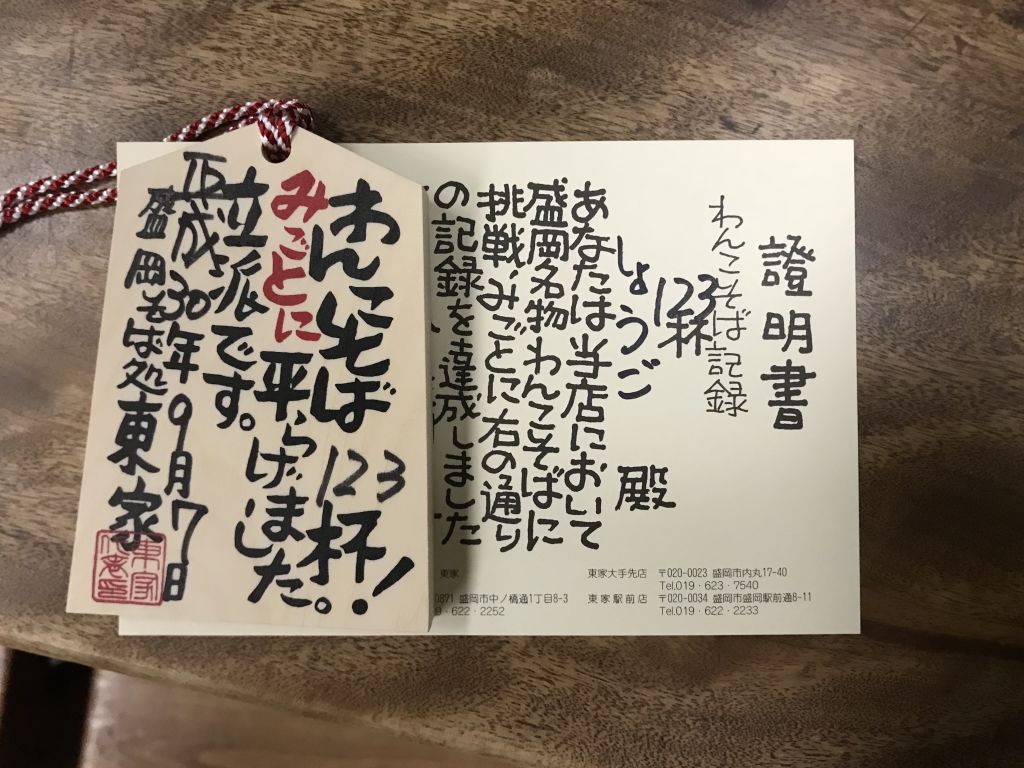 わんこそば 123杯!
みごとに平らげました。
立派です。
平成30年9月7日
盛岡そば処 東家
證明書
わんこそば記録
123杯
しょうご 殿
あなたは当店において
盛岡名物わんこそばに
挑戦、みごとに右の通り
の記録を達成しました
東家
0871 盛岡市中ノ橋通1丁目8-3
9・622・2252
東家大手先店 〒020-0023 盛岡市内丸17-40
Tel.019・623・7540
東家駅前店 〒020-0034 盛岡市盛岡駅前通8-11
Tel.019・622・2233